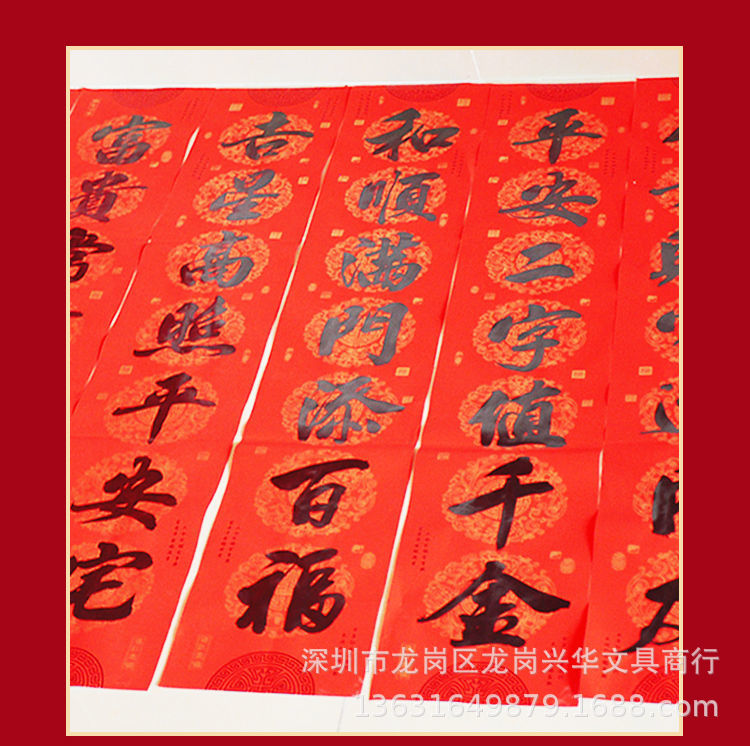 平安二字值千金
和順滿門添百福
吉星高照平安宅
富貴常
深圳市龙岗区龙岗兴华文具商行
13631649879.1688.com